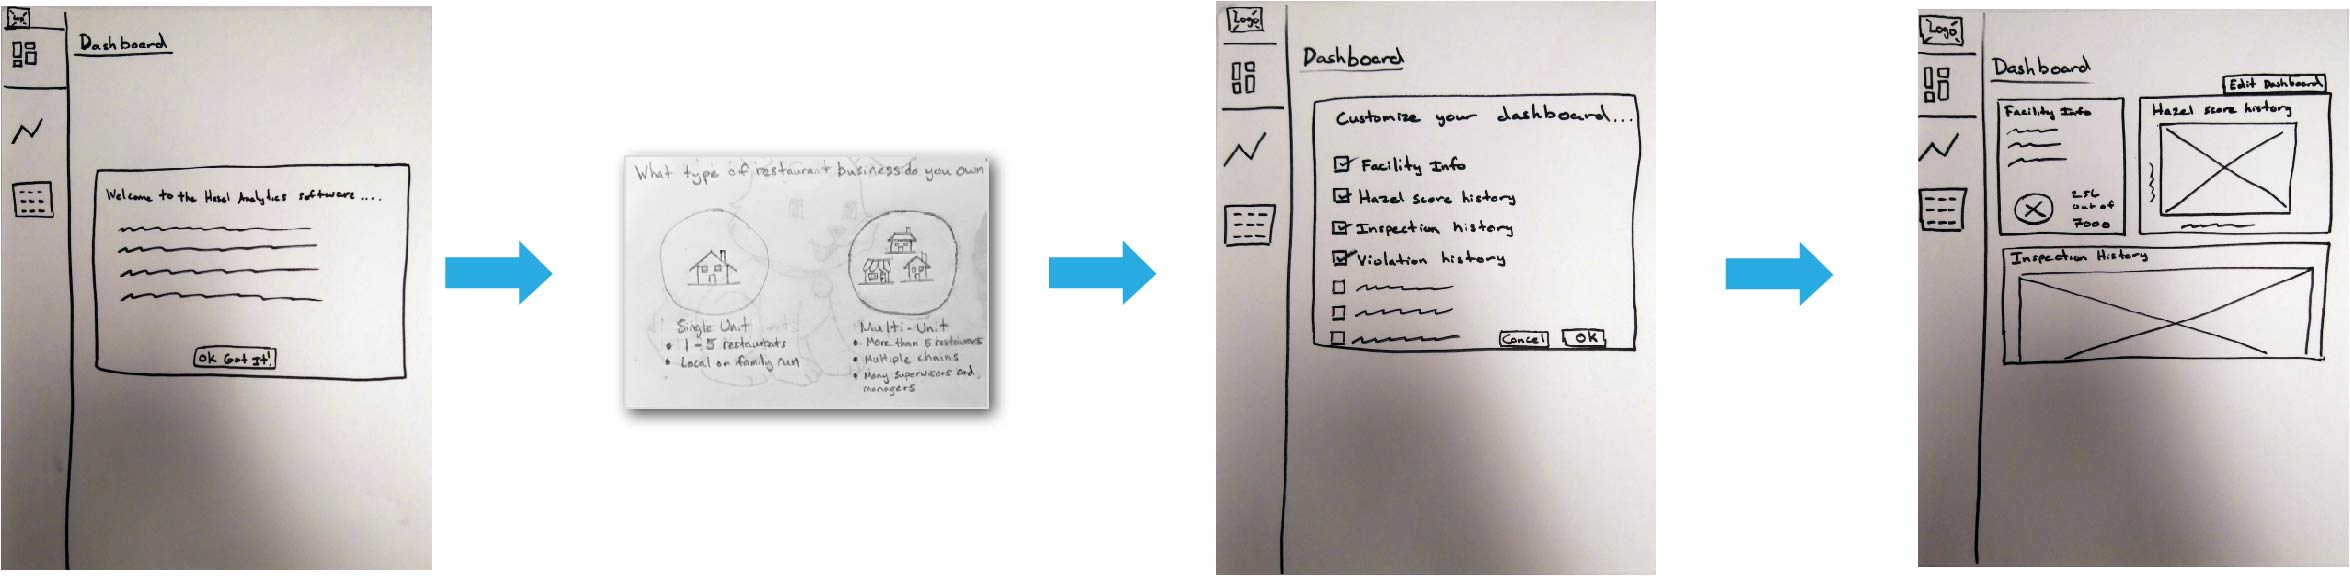 Dashboard
Welcome to the Hazel Analytics software ....
Ok Got It!
What type of restaurant business do you own
Single Unit
• 1-5 restaurants
• Local or family run
Multi-Unit
• More than 5 restaurants
• Multiple chains
• Many supervisors and,
managers
Logo
Dashboard
Customize your dashboard...
Facility Info
Hazel score history
Inspection history
Violation history
Cancel
OK
Logo
Dashboard
Edit Dashboard
Facility Info
256
out of
7000
Hazel score history
Inspection History